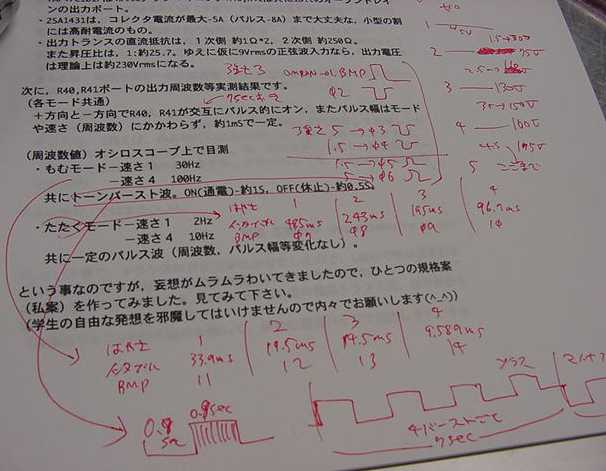 の出力ポート。
・2SA1431は、コレクタ電流が最大-5A(パルス-8A)まで大丈夫な、小型の割
には高耐電流のもの。
・出力トランスの直流抵抗は、1次側 約1Ω*2, 2次側 約250Ω。
また昇圧比は、1:約25.7。ゆえに仮に9Vrmsの正弦波入力なら、出力電圧
は理論上は約230Vrmsになる。
次に、R40,R41ポートの出力周波数等実測結果です。
(各モード共通)
+方向と-方向でR40, R41が交互にパルス的にオン、またパルス幅はモード
や速さ(周波数)にかかわらず、約1mSで一定。
(周波数値)オシロスコープ上で目測
・もむモード-速さ1 30Hz
-速さ4 100Hz
共にトーンバースト波。ON(通電)-約1S, OFF(休止)-約0.5S
・たたくモード-速さ1 2Hz
-速さ4 10Hz
共に一定のパルス波(周波数、パルス幅等変化なし)。
という事なのですが、妄想がムラムラわいてきましたので、ひとつの規格案
(私案)を作ってみました。見てみて下さい。
(学生の自由な発想を邪魔してはいけませんので内々でお願いします(^_^))
強さ3
BMP
φ2
7secおき
強さ5→φ3
1.5→φ4
1.5→φ5
5→φ6
1
2
3 130V
4
5 ここまで
はやさ 1 2 3 4
インタバル 485ms 243ms 195ms 96.7ms
BMP φ7 φ8 φ9 10
はやさ 1 2 3 4
インタバル 33.9ms 19.5ms 14.5ms 9.589ms
BMP 11 12 13 14
0.9sec
プラス
マイナス
4バーストごと
7sec